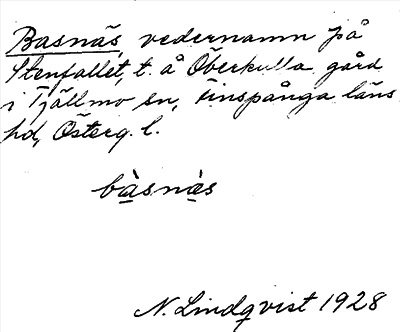 Basnäs, vedernamn på
Stenfallet, t. å Överkulla gård
i Tjällmo sn, Finspånga läns
hd, Österg. l.
bàsnàs
N. Lindqvist 1928